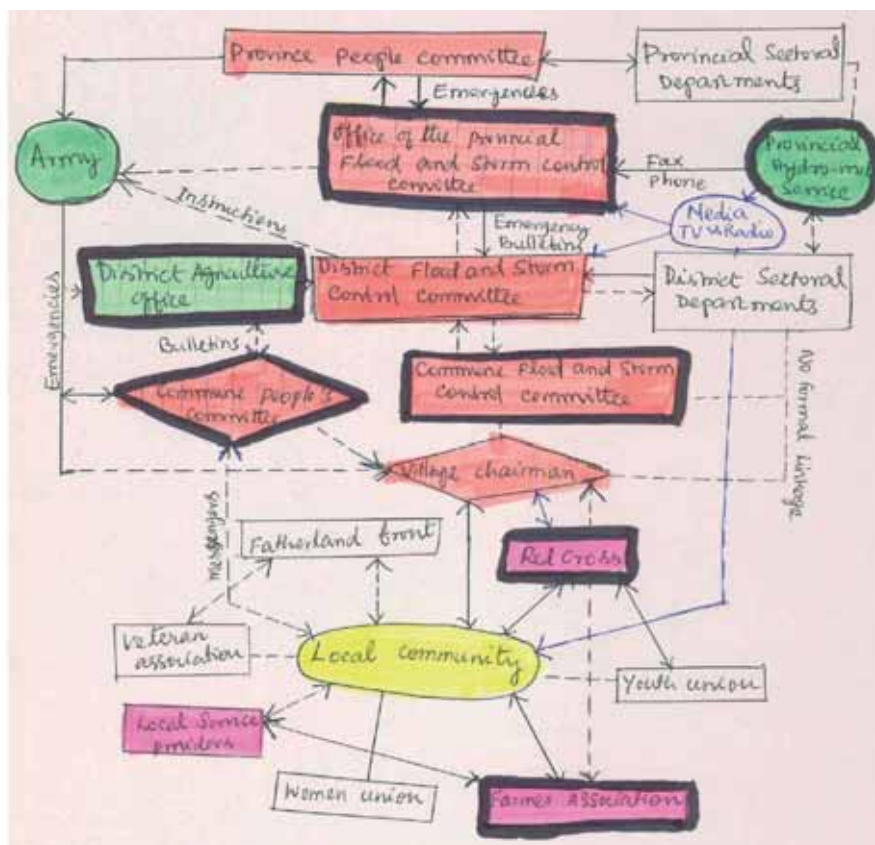 Province People committee
Provincial Sectoral
Departments
Emergencies
Office of the provincial
Flood and Storm control
committee
Army
Fax
Phone
Provincial
Hydro-met
Service
Instructions
Emergency
Bulletins
Media
TV Radio
District Agriculture
office
District Flood and Storm
Control committee
District Sectoral
Departments
Emergencies
Bulletins
Commune People's
committee
Commune Flood and Storm
Control committee
No formal linkage
Village chairman
messengers
Fatherland front
Red Cross
Veteran
association
Local community
Youth union
Local Service
providers
Women union
Farmer Association